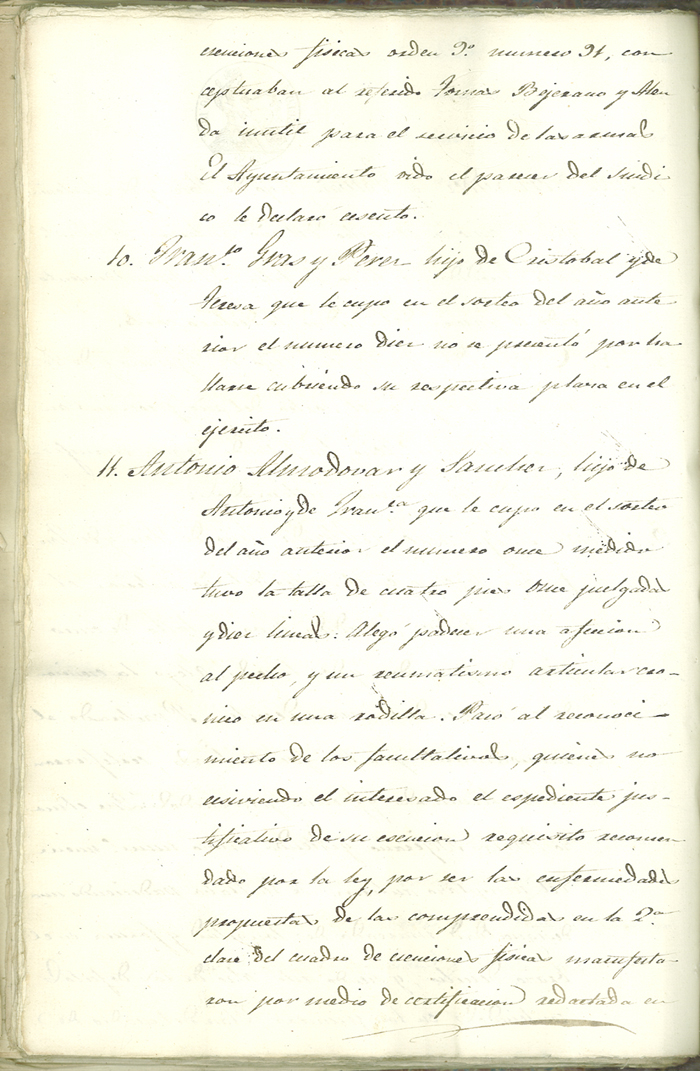 esenciones fisicas orden 9.º numero 91, con
ceptuaban al referido Tomas Bejerano y Alen
da inutil para el servicio de las armas
El Ayuntamiento oido el parecer del Sindi
co le declaró esento.
10. Fran.co Gras y Perez hijo de Cristobal y de
Teresa que le cupo en el sorteo del año ante
rior el numero diez no se presentó por ha
llarse cubriendo su respectiva plaza en el
ejercito.
11. Antonio Almodovar y Sanchez, hijo de
Antonio y de Fran.ca que le cupo en el sorteo
del año anterior el numero once medido
tuvo la talla de cuatro pies once pulgadas
y diez lineas. Alegó padecer una afeccion
al pecho, y un reumatismo articular cro-
nico en una rodilla. Pasó al reconoci-
miento de los facultativos, quienes no
ecsiviendo el interesado el espediente jus-
tificativo de su esencion requisito recomen
dado por la ley, por ser las enfermedades
propuestas de las comprendidas en la 2.a
clase del cuadro de esenciones fisicas manifesta
ron por medio de certificacion redactada en